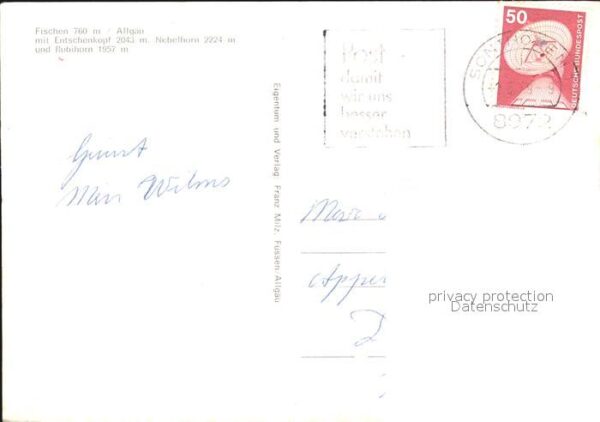 Fischen 760 m · Allgäu
mit Entschenkopf 2043 m. Nebelhorn 2224 m
und Rubihorn 1957 m
Eigentum und Verlag Franz Milz, Füssen/Allgäu
Post -
damit
wir uns
besser
verstehen
50
DEUTSCHE BUNDESPOST
SONTHOFEN
8972
privacy protection
Datenschutz